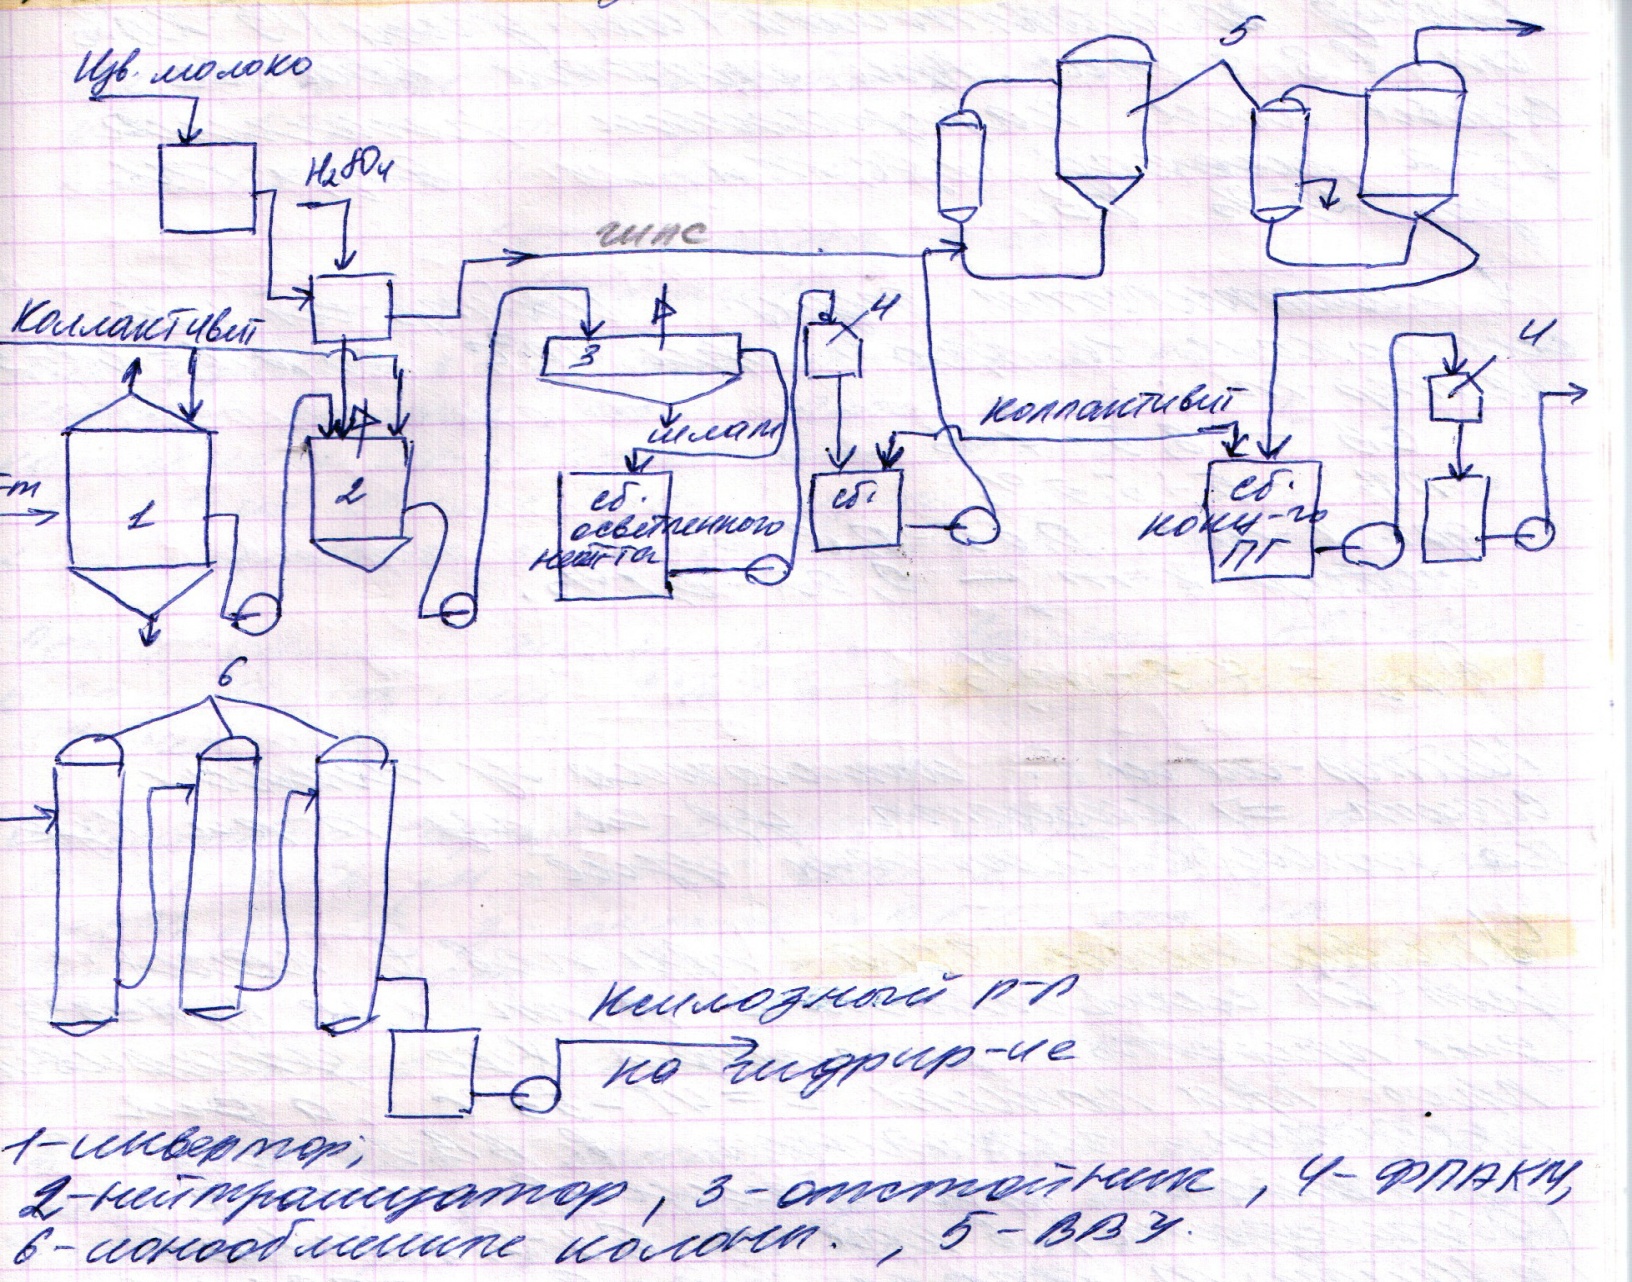 5
Изв. молоко
H₂SO₄
гипс
4
Коллактивит
3
4
Коллактивит
шлам
-т
1
2
сб.
осветленного
нейт-та
сб.
сб.
конц-го
ПГ
6
Ксилозный р-р
на гидрир-ие
1-инвертор;
2-нейтрализатор, 3-отстойник, 4-ФПАКМ,
6-ионообменные колонн., 5-ВВУ.